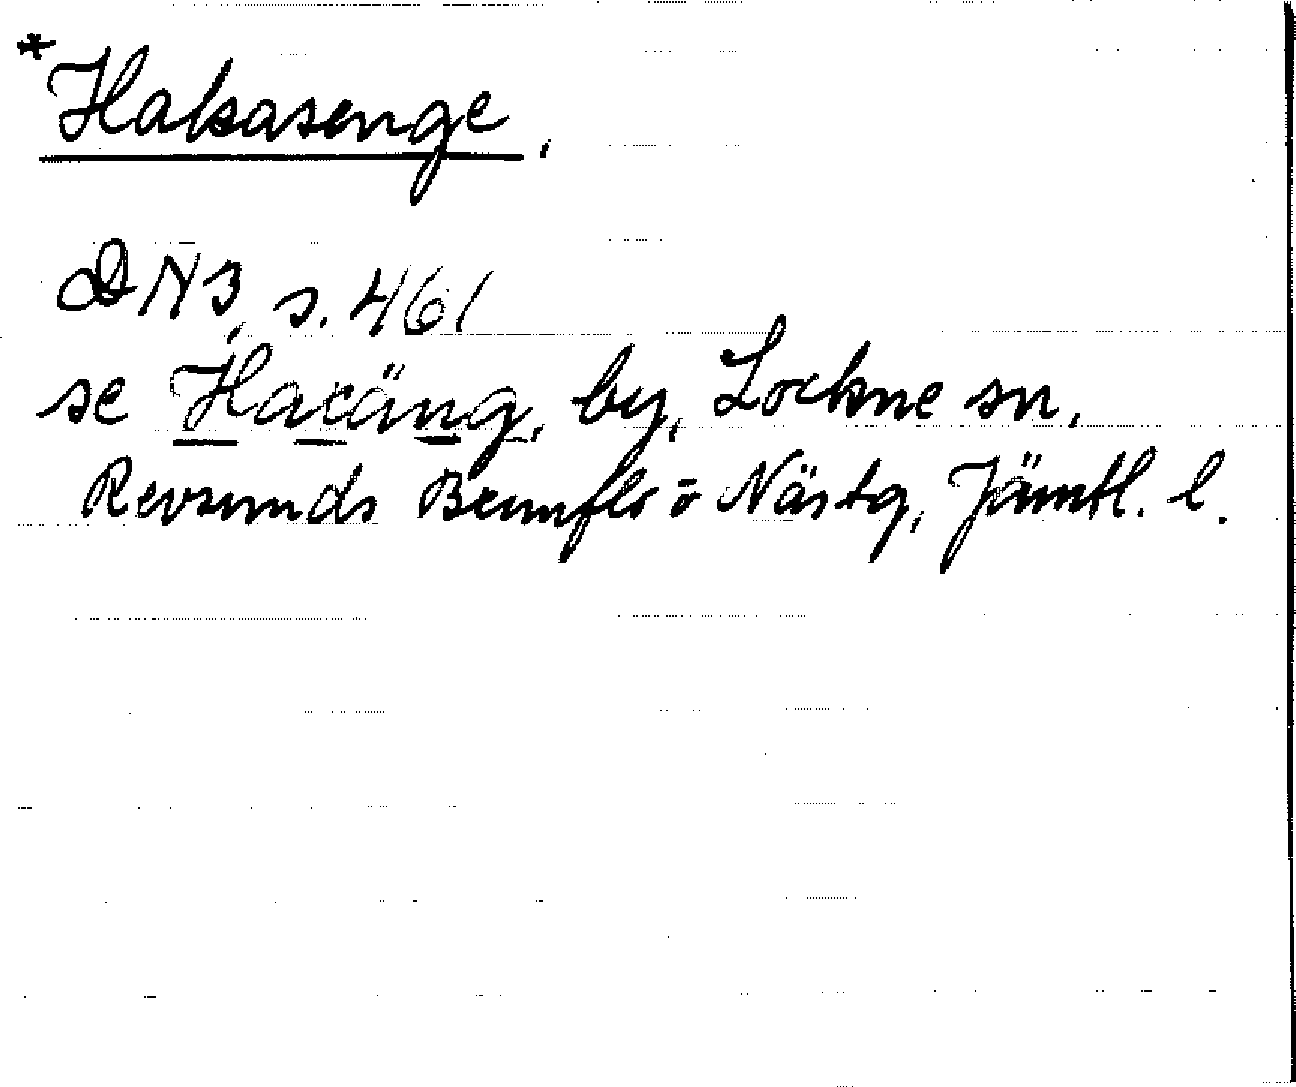 *Haksasenge,
DN 3, s. 461
se Haxäng, by, Lockne sn,
Revsunds Brunflo o Näs tg, Jämtl. l.